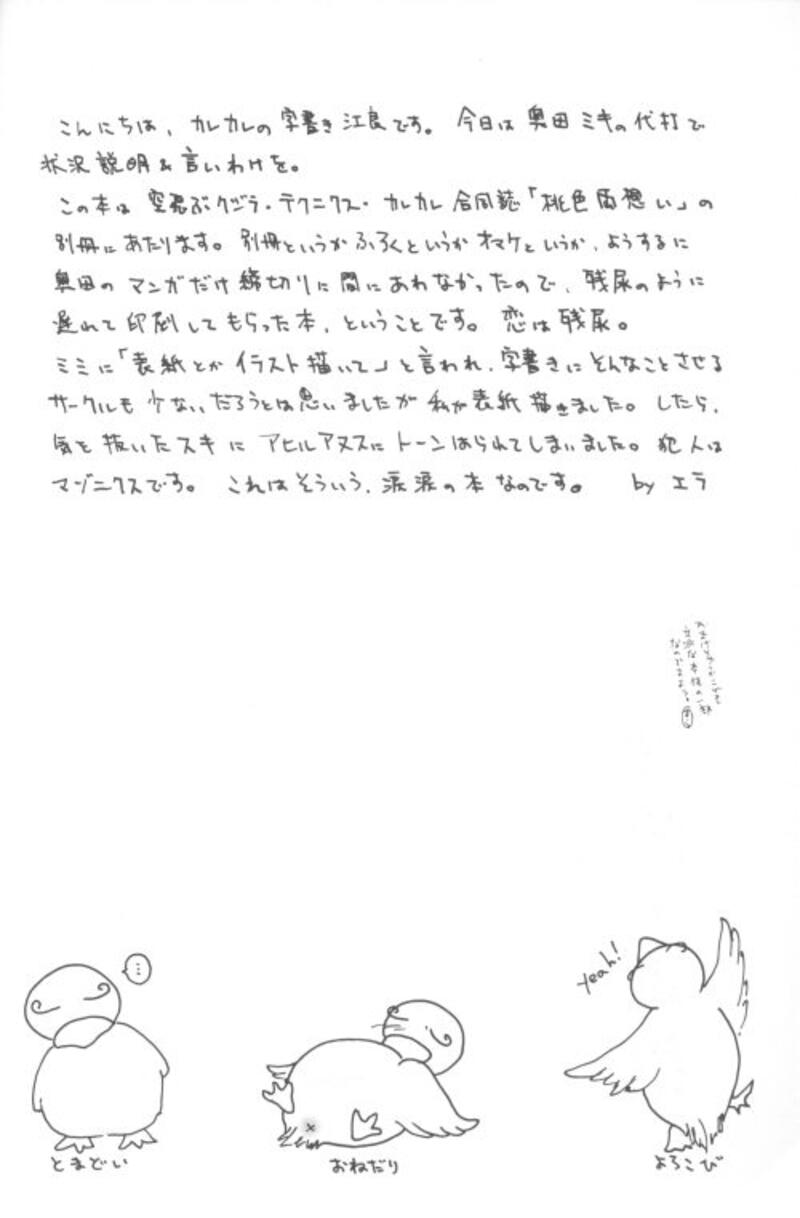 こんにちは、カレカレの字書き江良です。今日は奥田ミキの代打で
状況説明&言いわけを。
この本は空飛ぶクジラ・テクニクス・カレカレ合同誌「桃色片想い」の
別冊にあたります。別冊というかふろくというかオマケというか、ようするに
奥田のマンガだけ締切りに間にあわなかったので、残尿のように
遅れて印刷してもらった本、ということです。恋は残尿。
ミミに「表紙とかイラスト描いて」と言われ、字書きにそんなことさせる
サークルも少ないだろうとは思いましたが私が表紙描きました。したら、
気を抜いたスキにアヒルアヌスにトーンはられてしまいました。犯人は
マゾニクスです。これはそういう、涙涙の本なのです。 by エラ
立派な本体の一部
なのですよう。
…
yeah!
とまどい
おねだり
よろこび